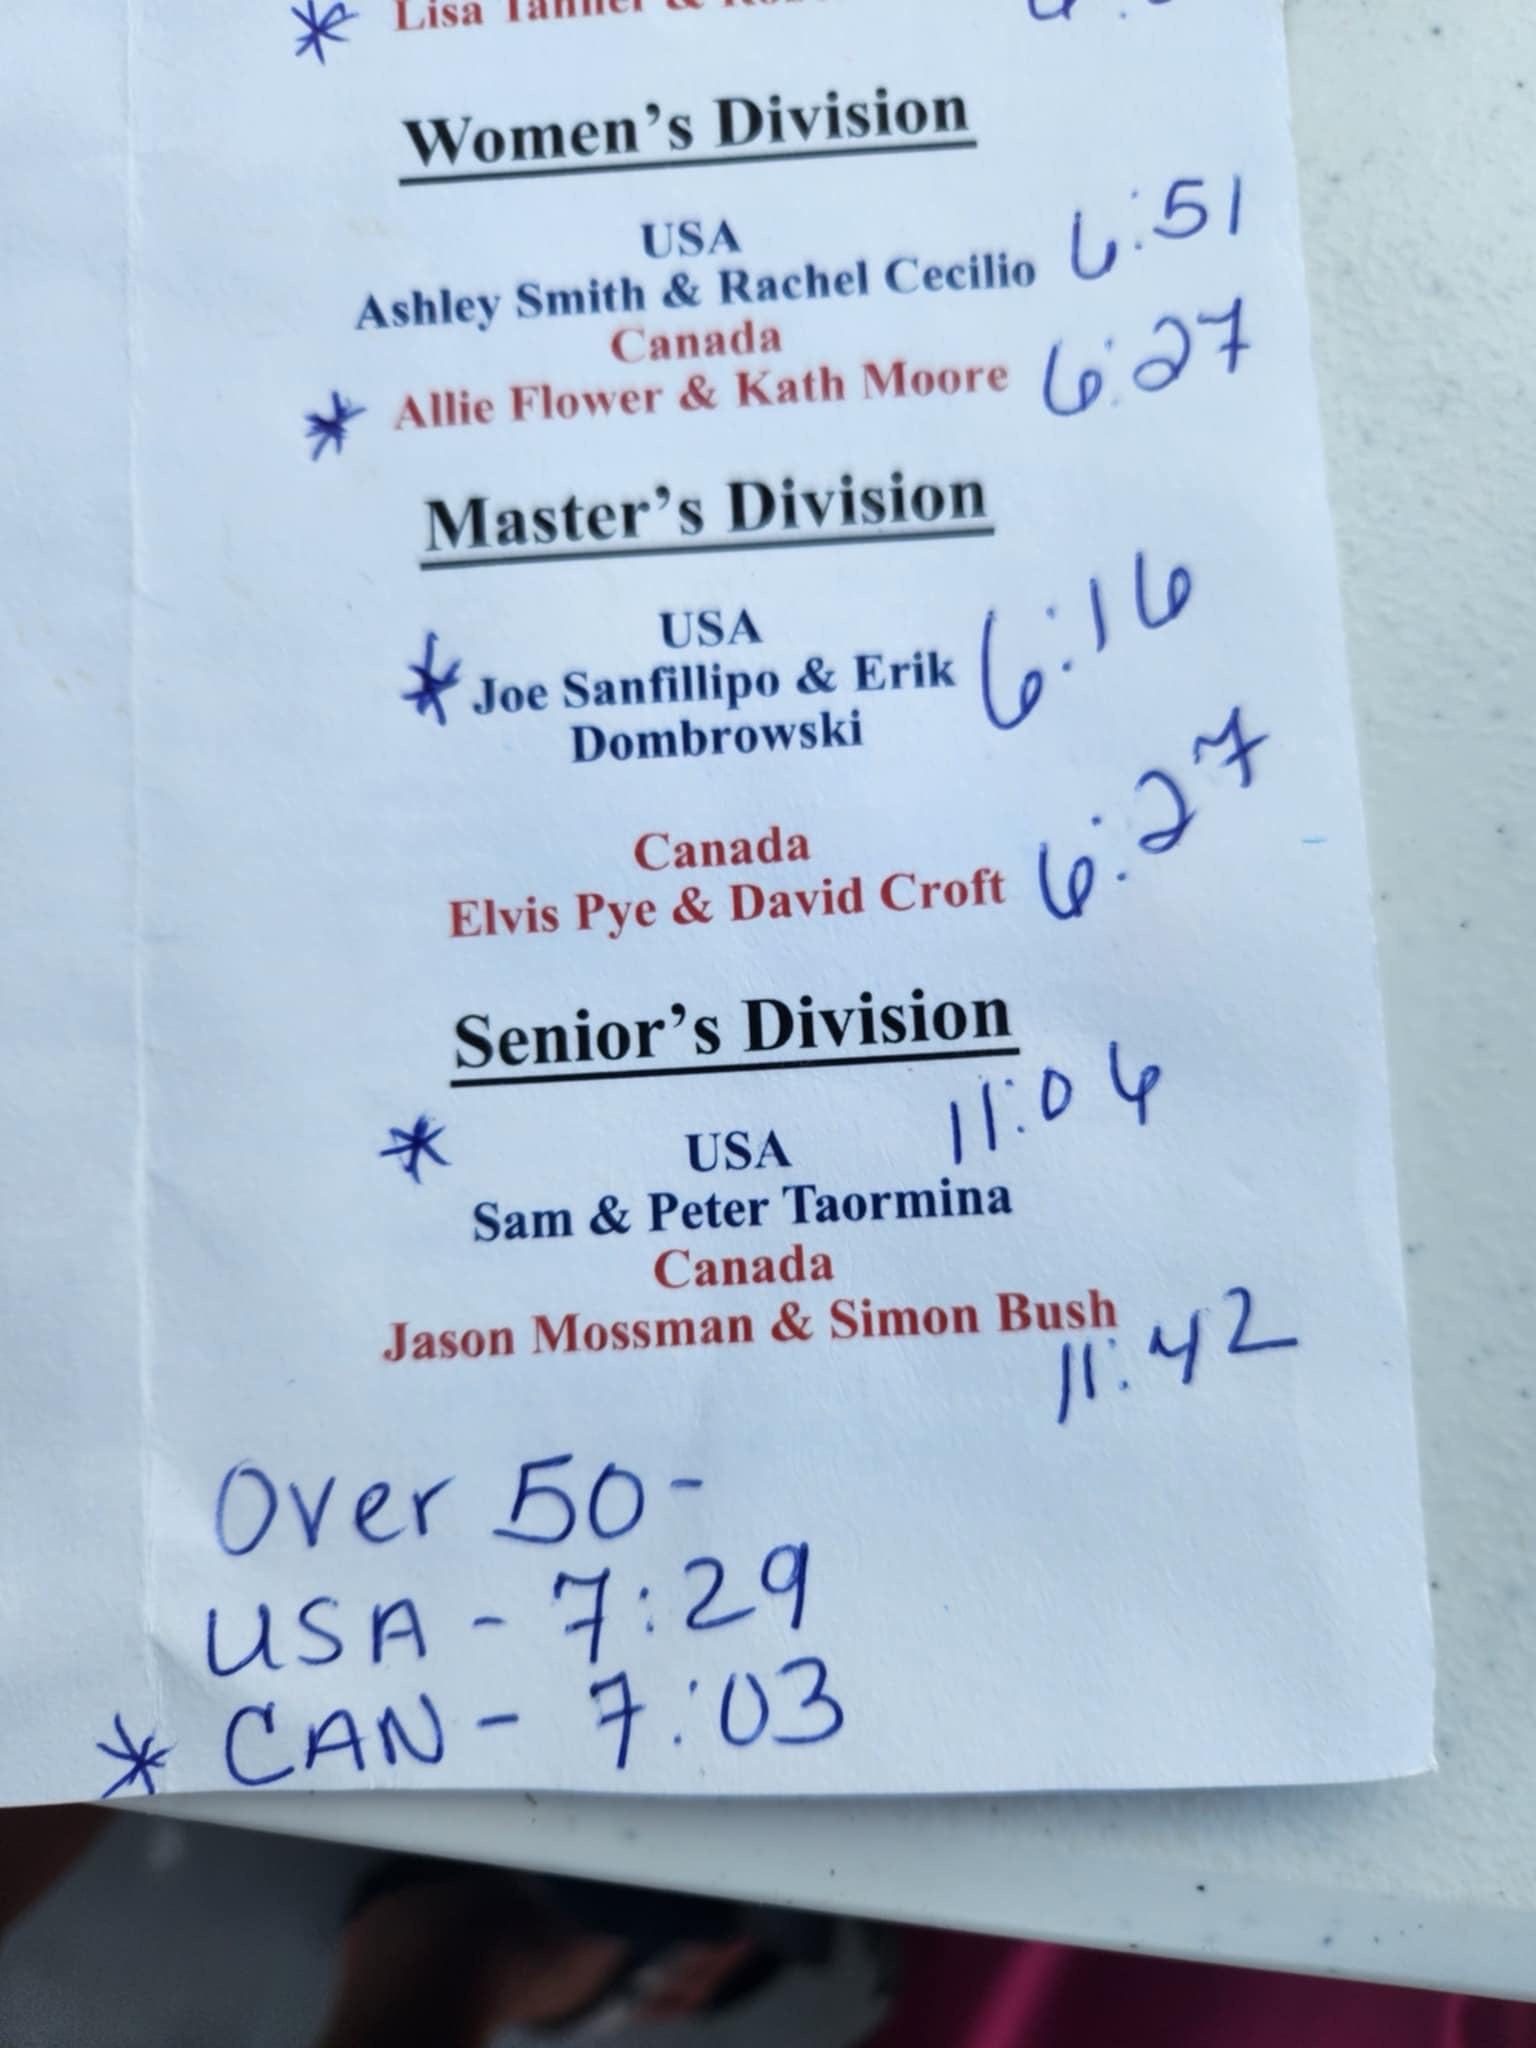 * Lisa Tanner &
Women's Division
USA
Ashley Smith & Rachel Cecilio 6:51
Canada
* Allie Flower & Kath Moore 6:27
Master's Division
USA
* Joe Sanfillipo & Erik 6:16
Dombrowski
Canada
Elvis Pye & David Croft 6:27
Senior's Division
* USA 11:06
Sam & Peter Taormina
Canada
Jason Mossman & Simon Bush
11:42
Over 50-
USA - 7:29
* CAN - 7:03